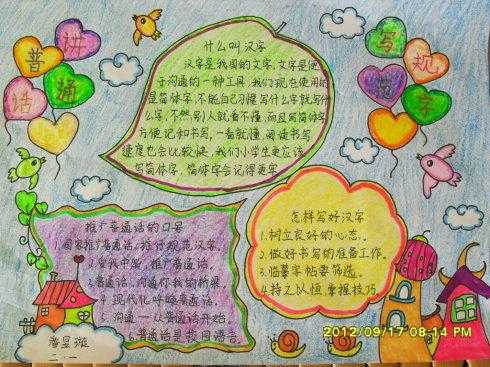 拼
普
通
话
写
规
范
字
什么叫汉字
汉字是我国的文字,文字是便
于沟通的一种工具,我们现在使用的
是简体字,不能自己习惯写什么字就写什
么字,不然别人就看不懂,而且写简体字
方便记和书写,一看就懂,阅读书写
速度也会比较快,我们小学生更应该
写简体字,简体字会记得更牢
推广普通话的口号
1.国家推广普通话,推行规范汉字。
2.爱我中华,推广普通话。
3.普通话,沟通你我的桥梁。
4.现代化呼唤普通话。
5.沟通——从普通话开始。
6.普通话是校园语言。
怎样写好汉字
1.树立良好的心态。
2.做好书写的准备工作。
3.临摹字帖要筛选。
4.持之以恒 掌握技巧
二.一
2012/09/17 08:14 PM